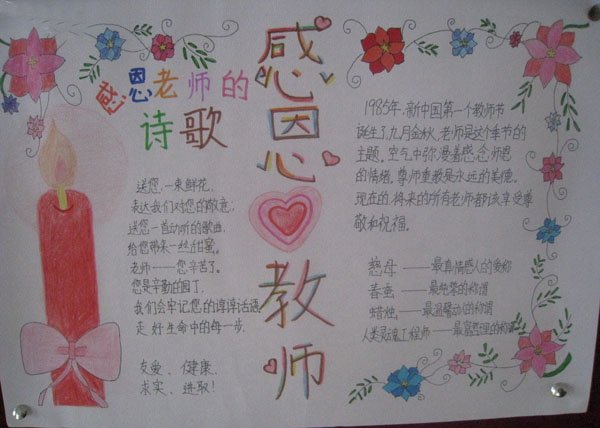 感恩老师的
诗歌
送您,一束鲜花,
表达我们对您的敬意,
送您一首动听的歌曲,
给您带来一丝甜蜜。
老师——您辛苦了。
您是辛勤的园丁,
我们会牢记您的谆谆话语
走好生命中的每一步。
友爱、健康、
求实、进取!
感恩
教师
1985年,新中国第一个教师节
诞生了,九月金秋,老师是这个季节的
主题。空气中弥漫着感念师恩
的情绪。尊师重教是永远的美德。
现在的,将来的所有老师都该享受尊
敬和祝福。
慈母——最真情感人的爱称
春蚕——最绝的称谓
蜡烛——最温馨动人的称谓
人类灵魂工程师——最富哲理的称谓